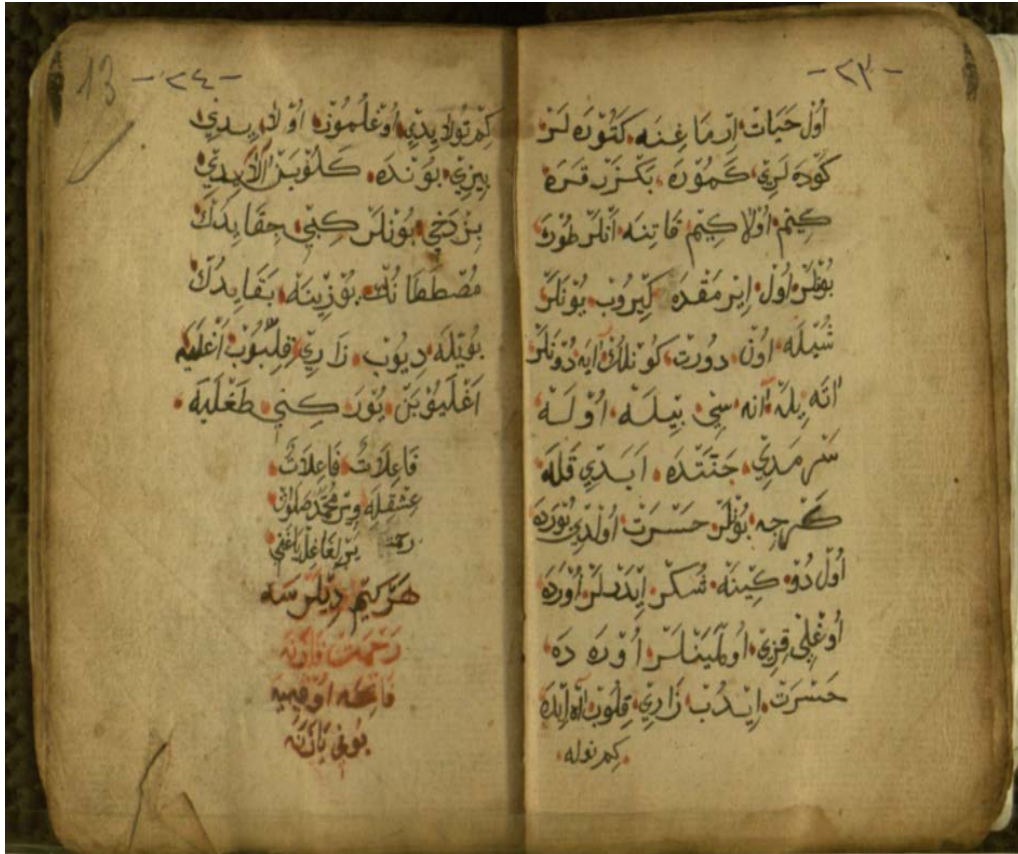 -٢٣-
اُولْ حَيَاتْ اِرْمَاغِنَه كَتُورَه لَرْ
كَودَه لَرِي كَمُورَه بَكْزَرْ قَرَه
كِيم اُولَا كِيم قَاتِنَه اَنْلَرْ طُورَه
بُونْلَرْ اُولْ اِيرْمَقْدَه كِيرُوبْ يُونَلَرْ
شُيلَه اُونْ دُورتْ كُونْلِكْ آيَه دُونَلَرْ
اَتَه بِلَه آنَه سِي بِيلَه اُولَه
سَرْمَدِي جَنَّتْدَه اَبَدِي قَلَه
كَرْچِه بُونْلَرْ حَسْرَتْ اُولْدِي بُورَدَه
اُولْ دُوكِينَه شُكُرْ اِيدَلَرْ اُورَدَه
اُوغْلِي قِزِي اُولْمِيَنْلَرْ اُورَه دَه
حَسْرَتْ اِيدُبْ زَارِي قِلُوبْ آه اِيدَه
كِم نوله
-٢٤-
13
كِمْ نُولَايِدِي اُوغْلُمُوزْ اُولَايِدِي
بِيزِي بُونْدَه كَلُوبَنْ آلَايِدِي
بِزْدَخِي بُونْلَرْ كِبِي حِقَايِدُكْ
مُصْطَفَانُكْ يُوزِينَه بَقَايِدُكْ
بُويْلَه دِيُوبْ زَارِي قِلُّبُوبْ اَغْلَيَه
اَغْلَيُوبَنْ يُورَكِنِي طَغْلَيَه
فَاعِلَاتُ فَاعِلَاتُ
عِشْقِلَه وِيرْ مُحَمَّدْ صَلَوَاتْ
رحمت
هَرْكِيمْ دِيلَرْسَه
رَحْمَتْ قَازَنَه
فَاتِحَه اُوقِيَه
بُونِي يَازَنَه